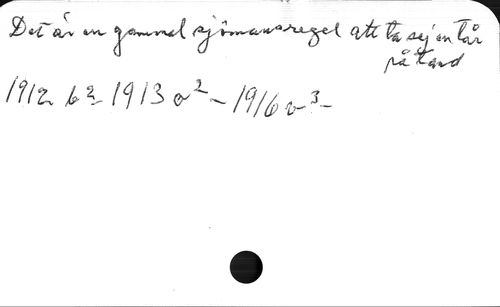 Det är en gammal sjömansregel att ta sej en tår
på tand
1912 b2 1913 a2 – 1916 v3 –